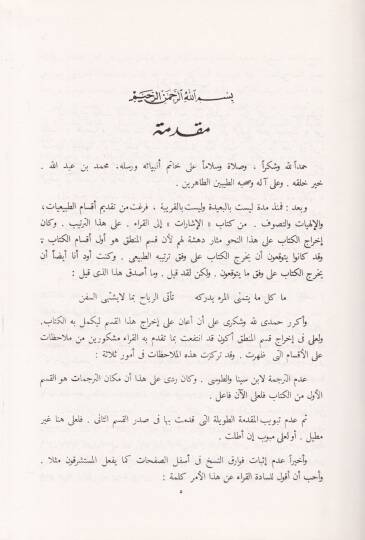 بسم الله الرحمن الرحيم
مقدمة
حمداً لله وشكراً ، وصلاة وسلاماً على خاتم أنبيائه ورسله ، محمد بن عبد الله .
خير خلقه . وعلى آله وصحبه الطيبين الطاهرين .
وبعد : فمنذ مدة ليست بالبعيدة وليست بالقريبة ، فرغت من تقديم أقسام الطبيعيات ،
والإلهيات والتصوف . من كتاب « الإشارات » إلى القراء . على هذا الترتيب . وكان
إخراج الكتاب على هذا النحو مثار دهشة لهم لأن قسم المنطق هو أول أقسام الكتاب ،
وقد كانوا يتوقعون أن يخرج الكتاب على وفق ترتيبه الطبيعي . وكنت أود أنا أيضاً أن
يخرج الكتاب على وفق ما يتوقعون . ولكن لقد قيل . وما أصدق هذا الذى قيل :
ما كل ما يتمنى المرء يدركه تأتى الرياح بما لا يشتهى السفن
وأكرر حمدى لله وشكرى على أن أعان على إخراج هذا القسم ليكمل به الكتاب .
ولعلى فى إخراج قسم المنطق أكون قد انتفعت بما تقدم به القراء مشكورين من ملاحظات
على الأقسام التى ظهرت . وقد تركزت هذه الملاحظات فى أمور ثلاثة :
عدم الترجمة لابن سينا والطوسى . وكان ردى على هذا أن مكان الترجمات هو القسم
الأول من الكتاب فلعلى الآن فاعل .
ثم عدم تبويب المقدمة الطويلة التى قدمت بها فى صدر القسم الثانى . فلعلى هنا غير
مطيل . أو لعلى مبوب إن أطلت .
وأخيراً عدم إثبات فوارق النسخ فى أسفل الصفحات كما يفعل المستشرقون مثلا .
وأحب أن أقول للسادة القراء عن هذا الأمر كلمة :
٥